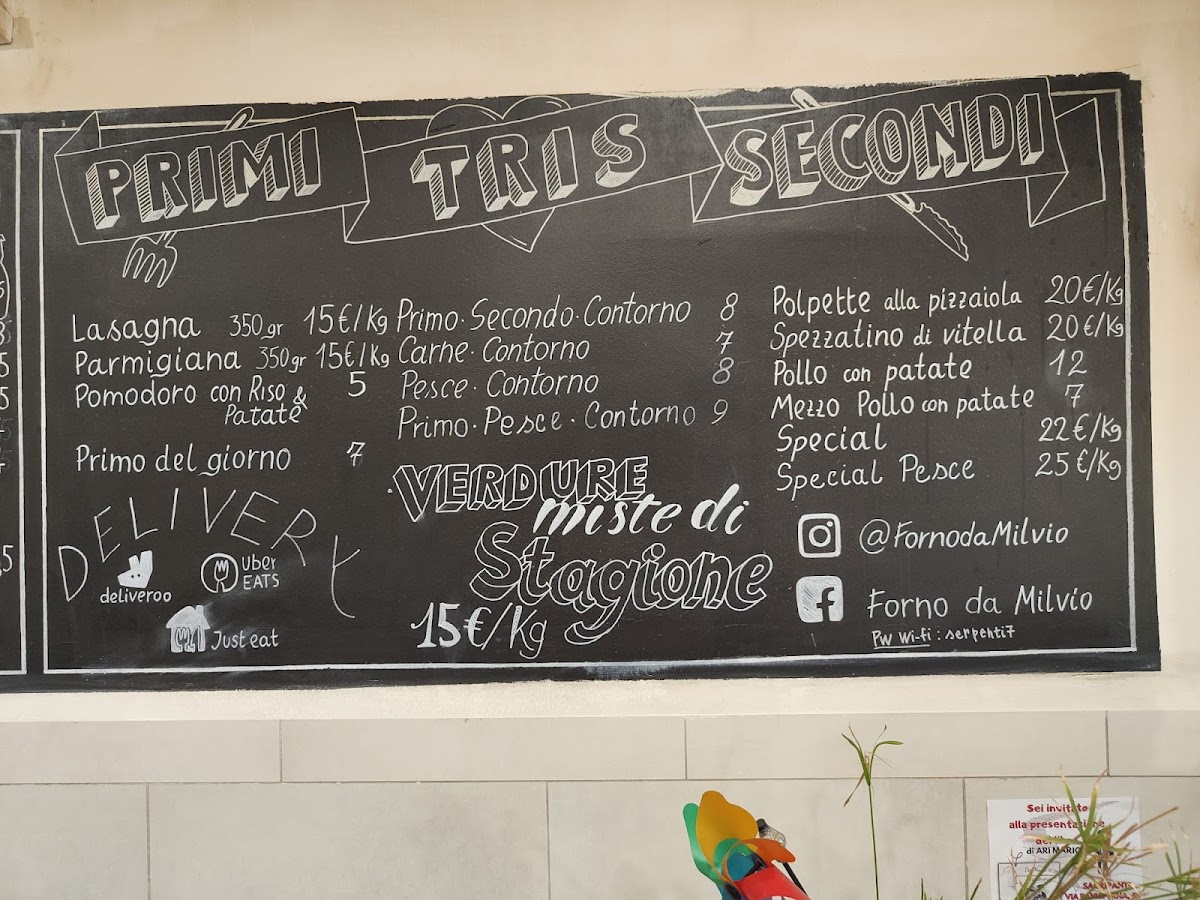 PRIMI
Lasagna 350 gr 15€/Kg
Parmigiana 350gr 15€/Kg
Pomodoro con Riso & 5
Patate
Primo del giorno 7
DELIVERY
deliveroo
Uber
EATS
Just eat
TRIS
Primo · Secondo · Contorno 8
Carne · Contorno 7
Pesce · Contorno 8
Primo · Pesce · Contorno 9
VERDURE
miste di
Stagione
15€/Kg
SECONDI
Polpette alla pizzaiola 20€/Kg
Spezzatino di vitella 20€/Kg
Pollo con patate 12
Mezzo Pollo con patate 7
Special 22€/Kg
Special Pesce 25€/Kg
@FornodaMilvio
Forno da Milvio
PW Wi-fi: serpenti7
Sei invitato
alla presentazione
di ARI MARIO